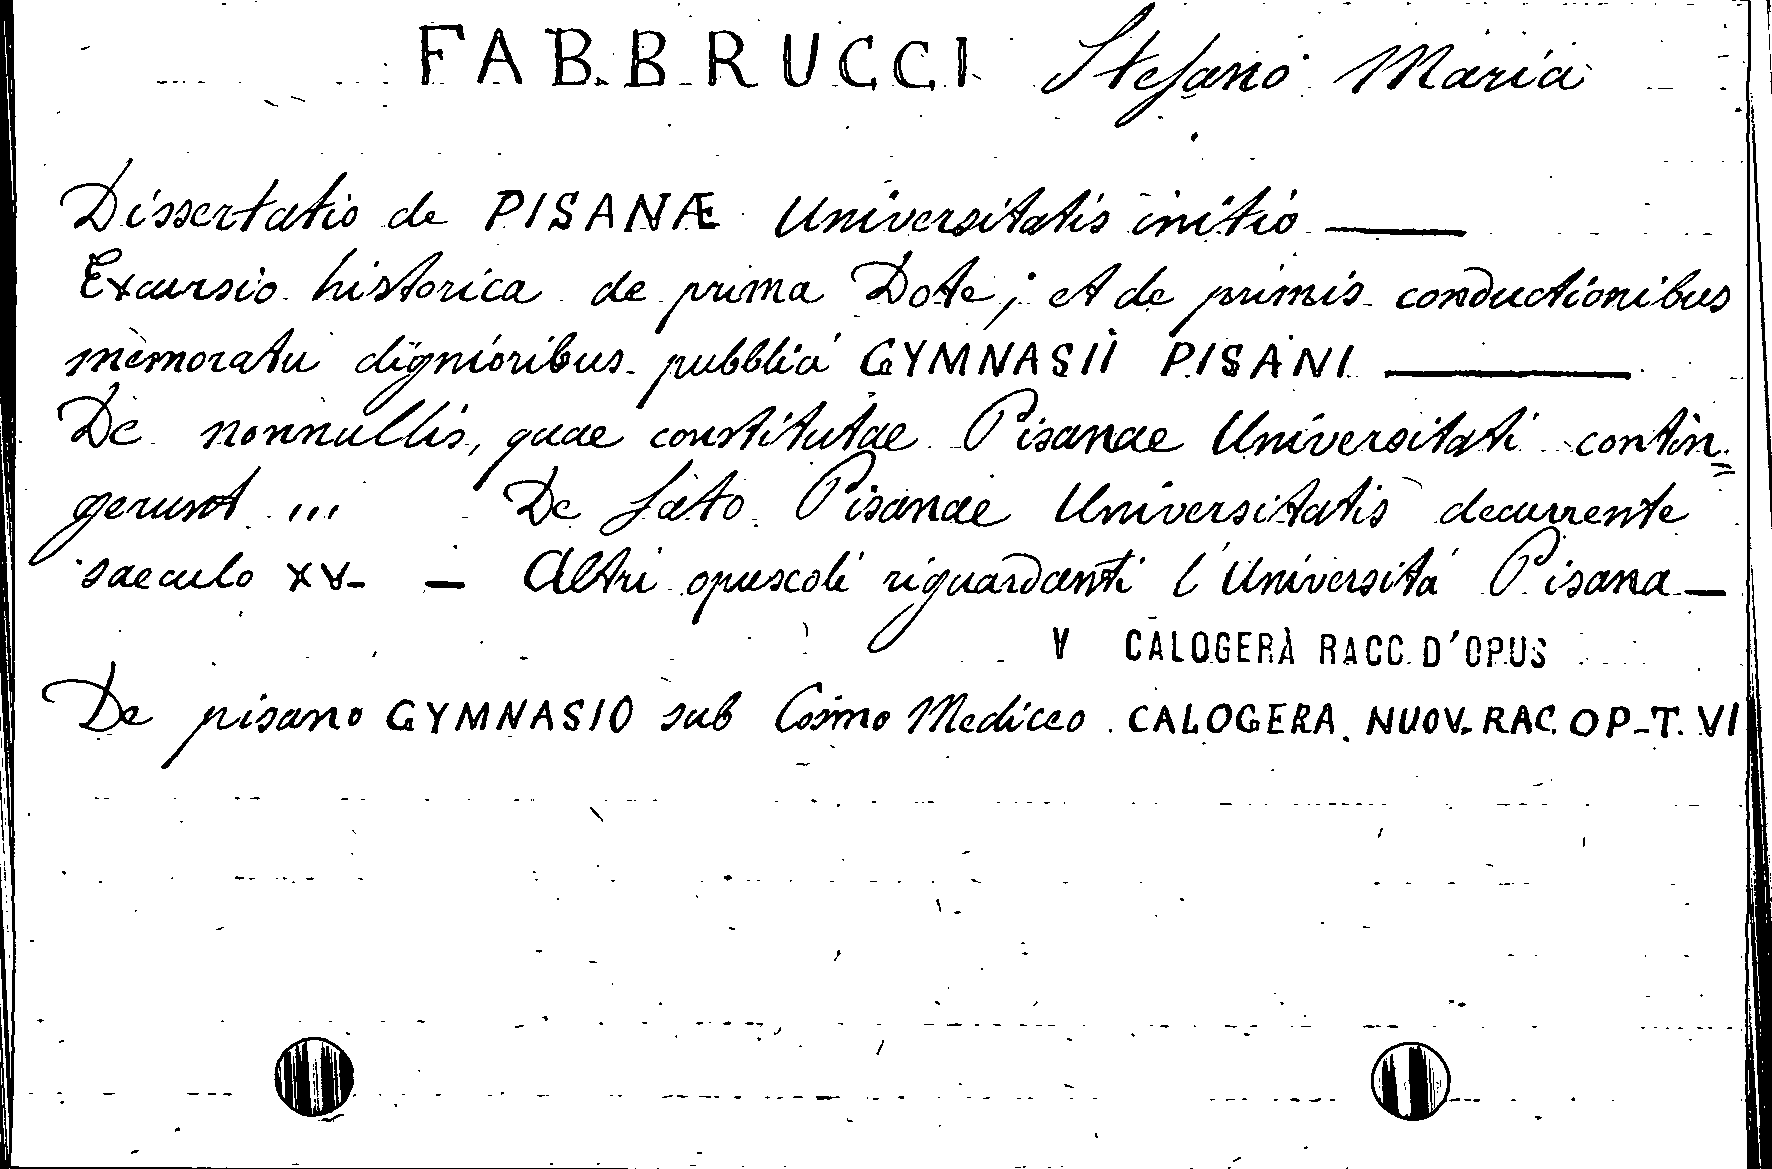 FABBRUCCI Stefano Maria
Dissertatio de PISANÆ Universitatis initio ——
Excursio historica de prima Dote; et de primis conductionibus
memoratu dignioribus pubblici GYMNASII PISANI ——
De nonnullis, quae constitutae Pisanae Universitati contin=
gerunt ... De fato Pisanae Universitatis decurrente
saeculo XV- — Altri opuscoli riguardanti l'Università Pisana —
V CALOGERÀ RACC. D'OPUS
De pisano GYMNASIO sub Cosmo Mediceo. CALOGERA. NUOV. RAC. OP-T. VI